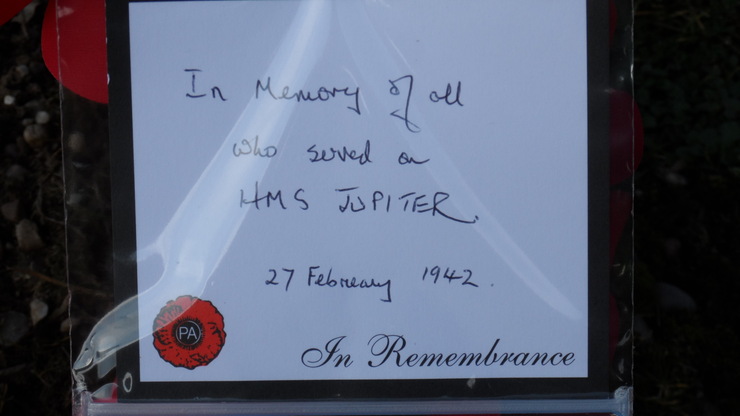 In Memory of all
who served on
HMS JUPITER.
27 February 1942.
PA
In Remembrance